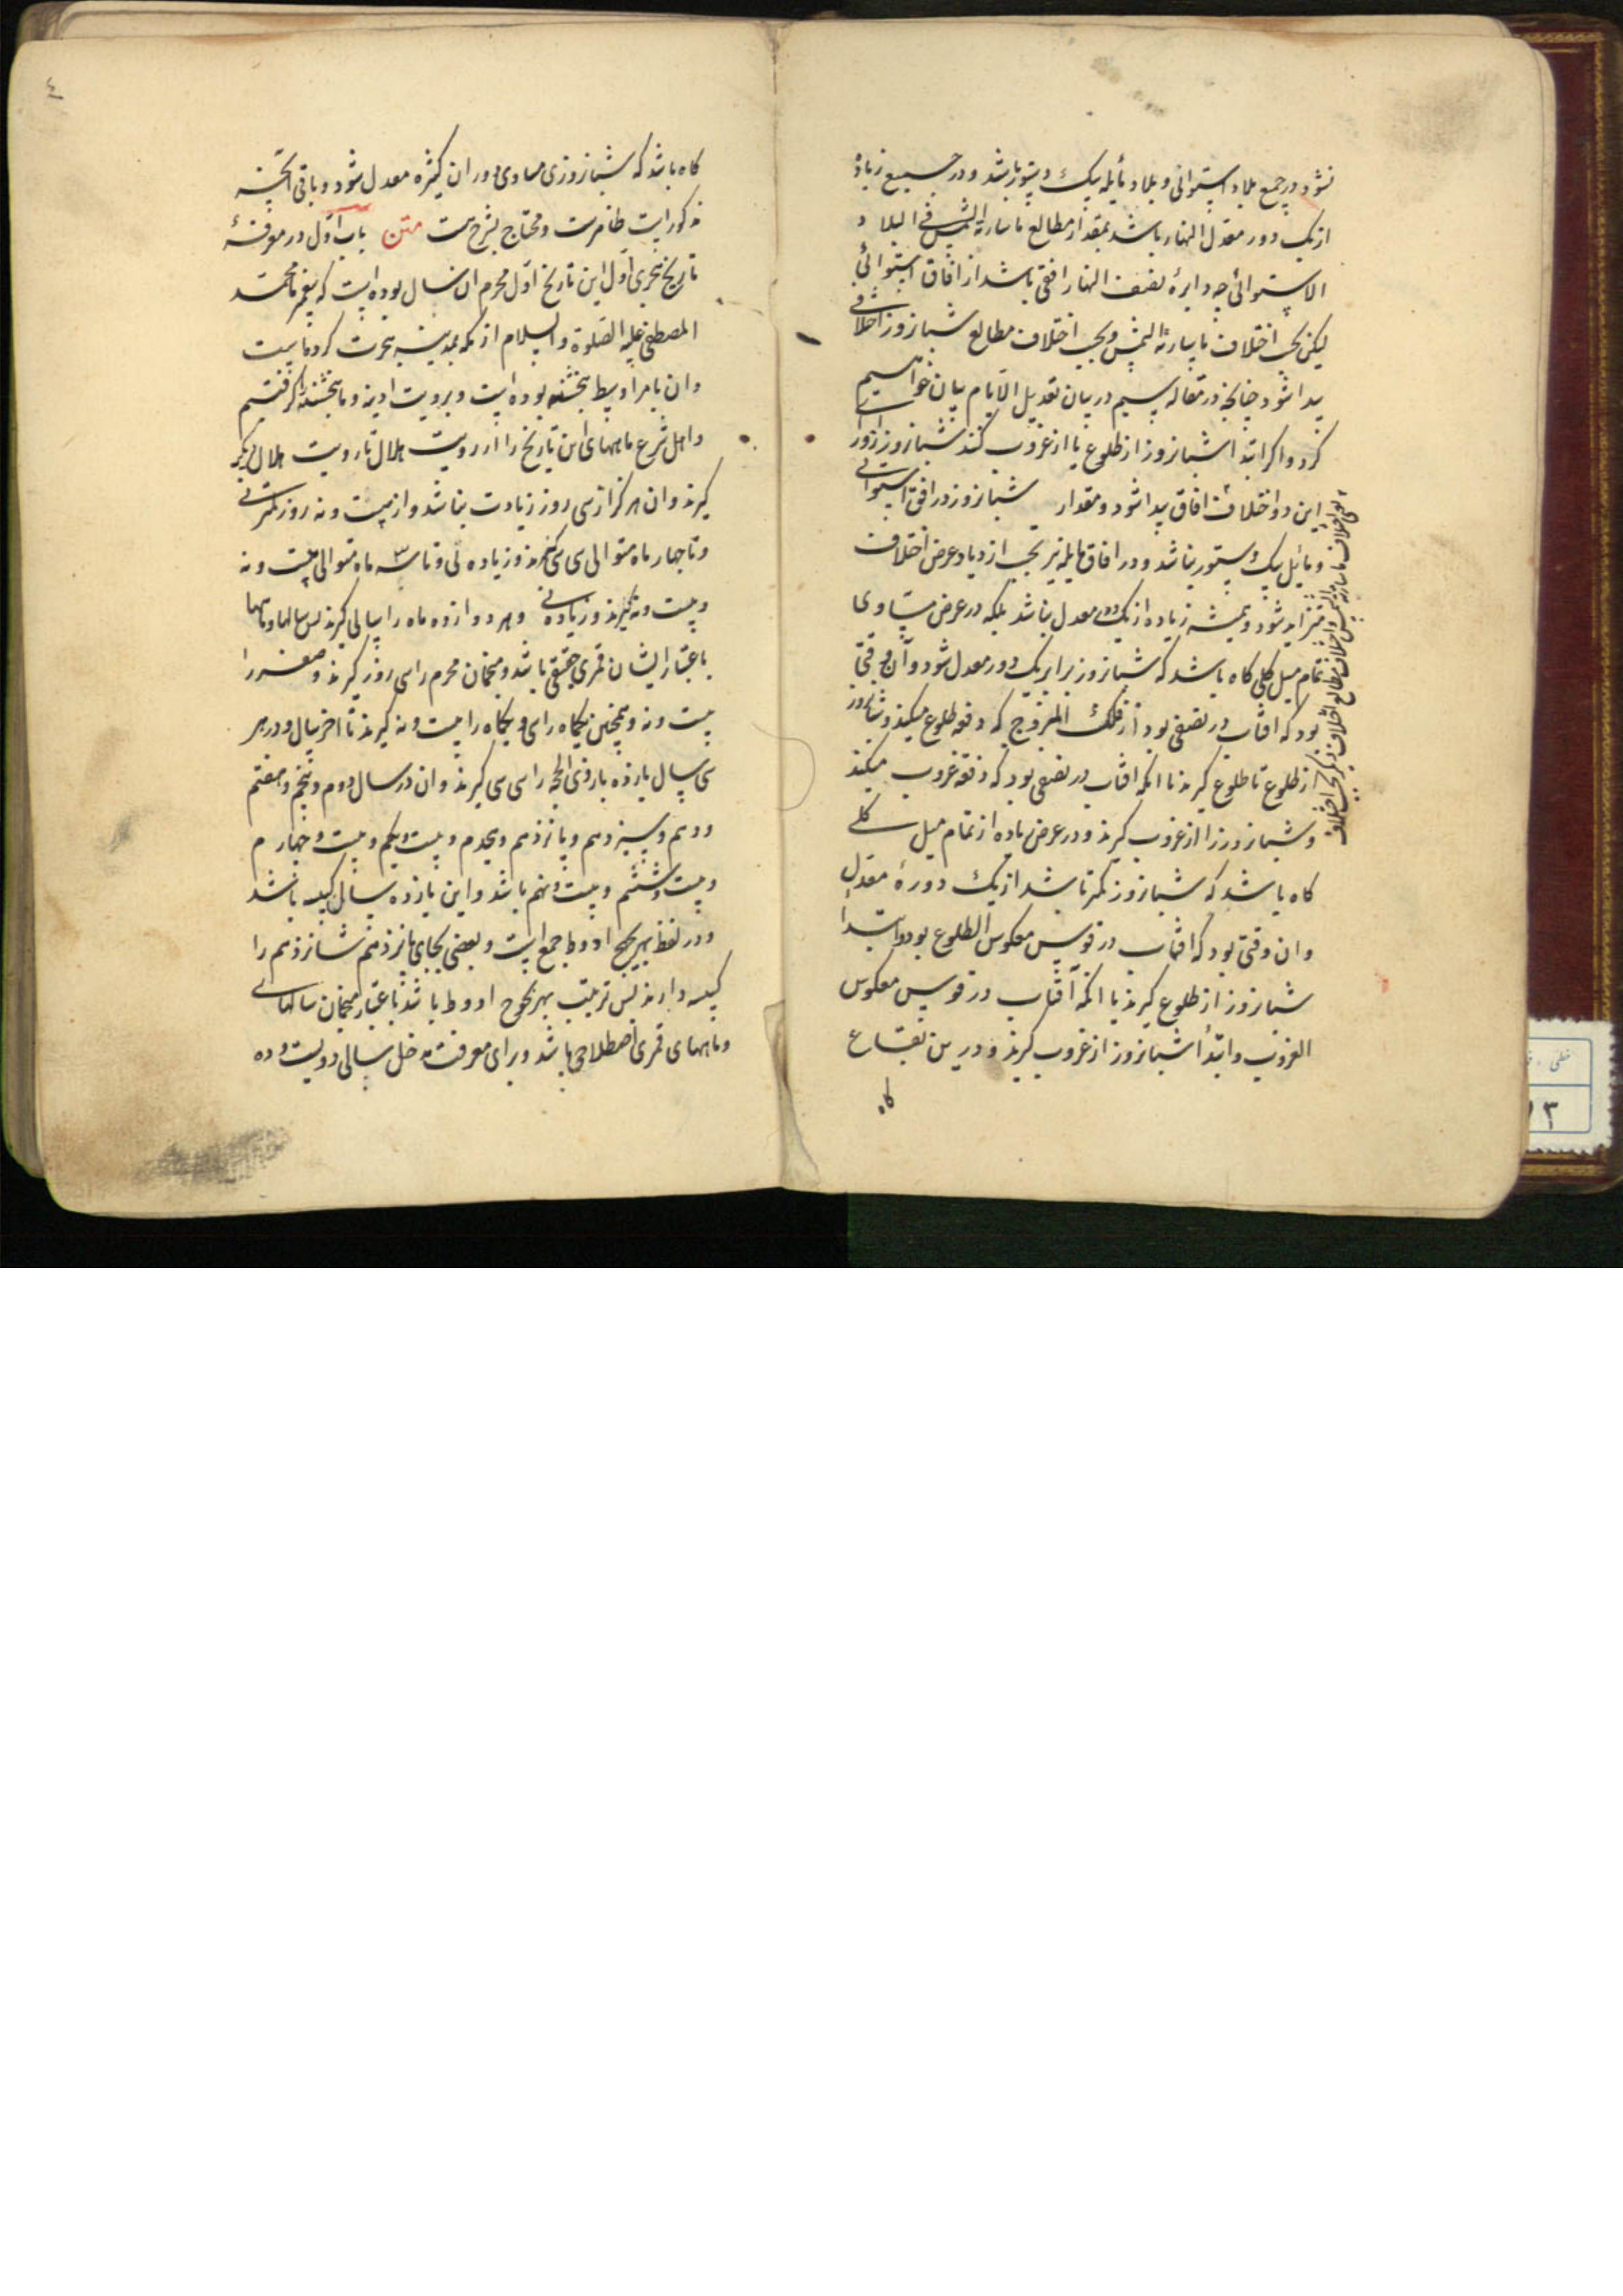 نشود در جمع بلاد استوائی و بلاد مایله بیک دستور باشد و در جمیع زیاده
از یک دور معدل النهار باشد بمقدار مطالع ما سارته الشمس فی البلاد
الاستوائی چه دایرهٔ نصف النهار افقی باشد از افاق استوائی
لیکن بحسب اختلاف ما سارته الشمس و بحسب اختلاف مطالع شبانروز اختلافی
پیدا شود چنانچه در مقاله سیم در بیان تعدیل الایام بیان خواهیم
کرد و اگر ابتدا شبانروز از طلوع یا از غروب کنند شبانروز را از
این دو اختلاف افاق پیدا شود و مقدار شبانروز در افق استوائی
و مایل بیک دستور نباشد و در افاق مایله نیز بحسب ازدیاد عرض اختلاف
متزاید شود و همیشه زیاده از یک دور معدل نباشد بلکه در عرض مساوی
تمام میل کلی گاه باشد که شبانروز برابر یک دور معدل شود و آن وقتی
بود که افتاب در نصفی بود از فلک البروج که دفعه طلوع میکند و شبانروز
از طلوع تا طلوع گیرند یا انکه افتاب در نصفی بود که دفعه غروب میکند
و شبانروز را از غروب گیرند و در عرض زیاده از تمام میل کلی
گاه باشد که شبانروز کمتر باشد از یک دورهٔ معدل
و ان وقتی بود که افتاب در قوس معکوس الطلوع بود و ابتدا
شبانروز از طلوع گیرند یا انکه آفتاب در قوس معکوس
الغروب و ابتدأ شبانروز از غروب گیرند و درین بقاع
گاه
اختلاف ما سارته الشمس و اختلاف مطالع اختلاف دیگر بحسب اختلاف
٤
گاه باشد که شبانروزی مساوی دوران کثیره معدل شود و باقی انچه
مذکور است ظاهرست و محتاج بشرح نیست متن باب اول در معرفة
تاریخ هجری اول این تاریخ اول محرم ان سال بوده است که پیغمبر ما محمد
المصطفی علیه الصلوة والسلام از مکه بمدینه هجرت کرده است
و ان بامر اوسط پنجشنبه بوده است و برویت ادینه و ما پنجشنبه گرفتیم
و اهل شرع ماههای این تاریخ را از رویت هلال تا رویت هلال دیگر
گیرند و ان هرگز از سی روز زیادت نباشد و از بیست و نه روز کمتر نی
و تا چهار ماه متوالی سی سی گیرند و زیاده نی و تا سه ماه متوالی بیست و نه
و بیست و نه گیرند و زیاده نی و هر دوازده ماه را سالی گیرند پس سالها و ماهها
باعتبار ایشان قمری حقیقی باشد و منجمان محرم را سی روز گیرند و صفر را
بیست و نه و همچنین یکماه را سی و یکماه را بیست و نه گیرند تا اخر سال و در هر
سی سال یازده بار ذی الحجه را سی سی گیرند و ان در سال دوم و پنجم و هفتم
و دهم و سیزدهم و پانزدهم و هجدم و بیست و یکم و بیست و چهارم
و بیست و ششم و بیست و نهم باشد و این یازده سال کبیسه باشد
و در لفظ بهزیجهح ادوط جمع است و بعضی بجای پانزدهم شانزدهم را
کبیسه دارند پس ترتیب بهزیجوح ادوط باشد باعتبار منجمان سالهای
و ماههای قمری اصطلاحی باشد و برای معرفت مدخل سالی دویست و ده